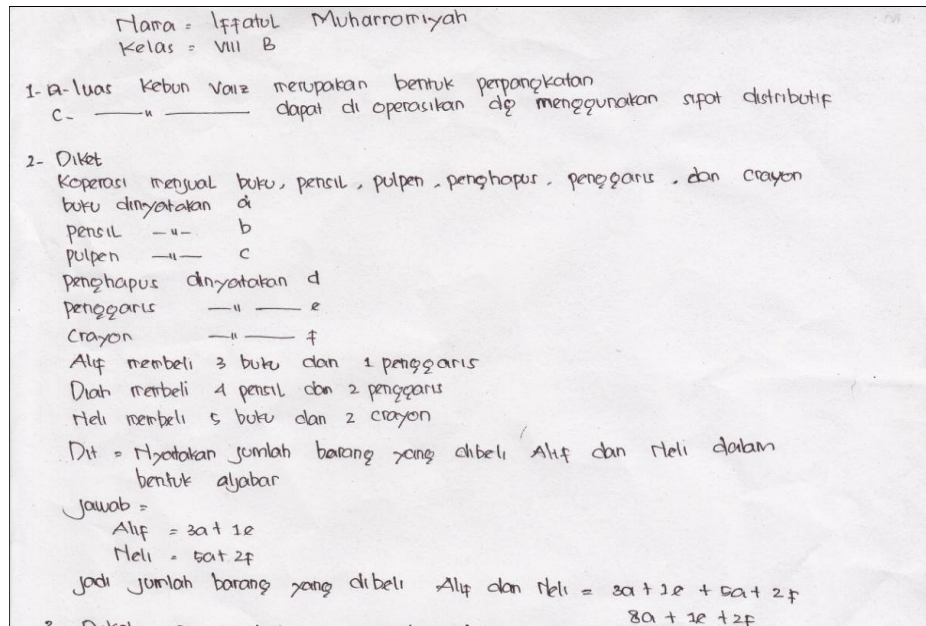 Nama = Iffatul Muharromiyah
Kelas = VIII B
1- a- luas kebun Vaiz merupakan bentuk perpangkatan
c- —— " —— dapat di operasikan dg menggunakan sifat distributif
2- Diket
Koperasi menjual buku, pensil, pulpen, penghapus, penggaris, dan crayon
buku dinyatakan a
pensil —"— b
pulpen —"— c
penghapus dinyatakan d
penggaris —"— e
crayon —"— f
Alif membeli 3 buku dan 1 penggaris
Diah membeli 4 pensil dan 2 penggaris
Neli membeli 5 buku dan 2 crayon
Dit = Nyatakan jumlah barang yang dibeli Alif dan Neli dalam
bentuk aljabar
Jawab =
Alif = 3a + 1e
Neli = 5a + 2f
Jadi jumlah barang yang dibeli Alif dan Neli = 3a + 1e + 5a + 2f
8a + 1e + 2f